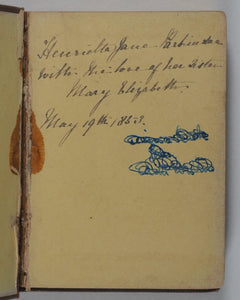 Henrietta Jane
with the love of her sister
Mary Elizabeth
May 19th 1863.